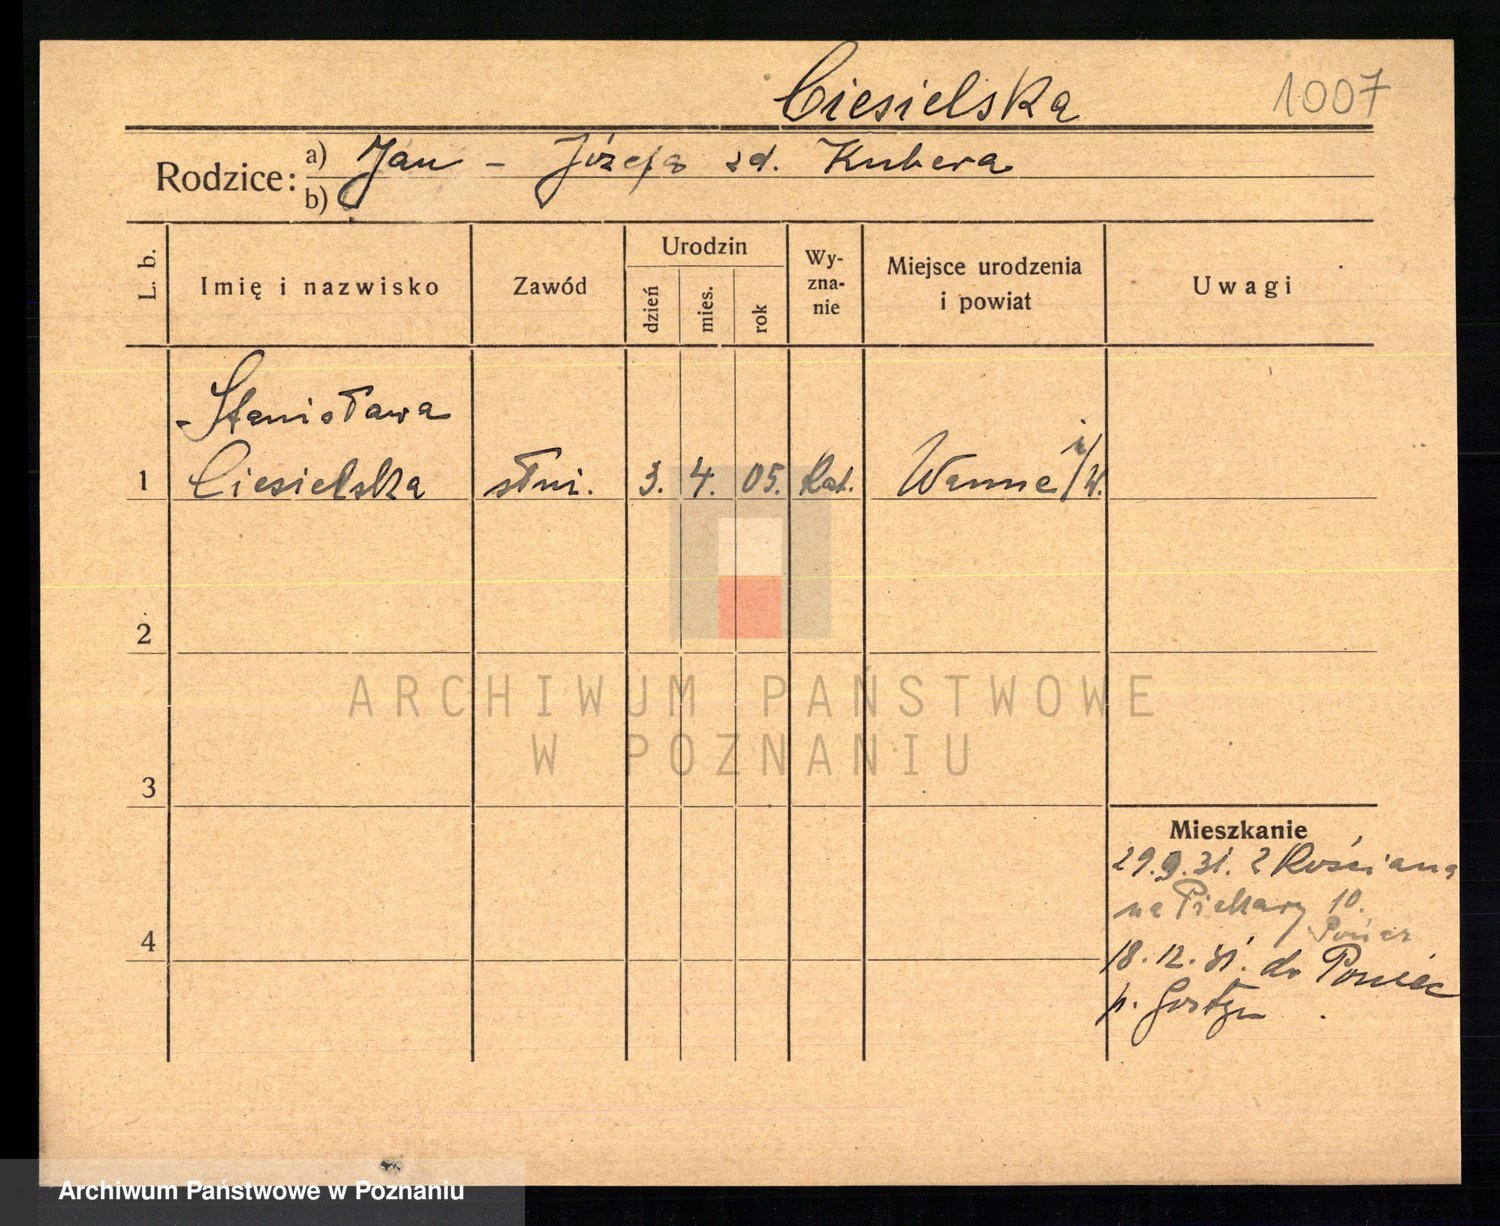 Ciesielska 1007
Rodzice:
a) Jan - Józefa zd. Kubera
b)
L. b.
Imię i nazwisko
Zawód
Urodzin
dzień
mies.
rok
Wy-
zna-
nie
Miejsce urodzenia
i powiat
Uwagi
Stanisława
1 Ciesielska służ. 3. 4. 05. Kat. Wanne i/W.
2
3
4
Mieszkanie
29.9.31. z Kościana
na Piekary 10.
Poniec
18.12.31. do Poniec
p. Gostyn
ARCHIWUM PAŃSTWOWE
W POZNANIU
Archiwum Państwowe w Poznaniu